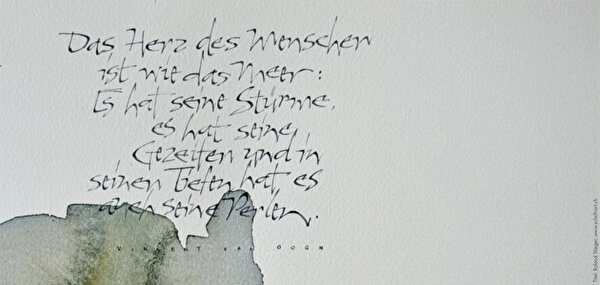 Das Herz des Menschen
ist wie das Meer:
Es hat seine Stürme,
es hat seine
Gezeiten und in
seinen Tiefen hat es
auch seine Perlen.
VINCENT VAN GOGH
Titel: Roland Stieger, www.schrift-art.ch